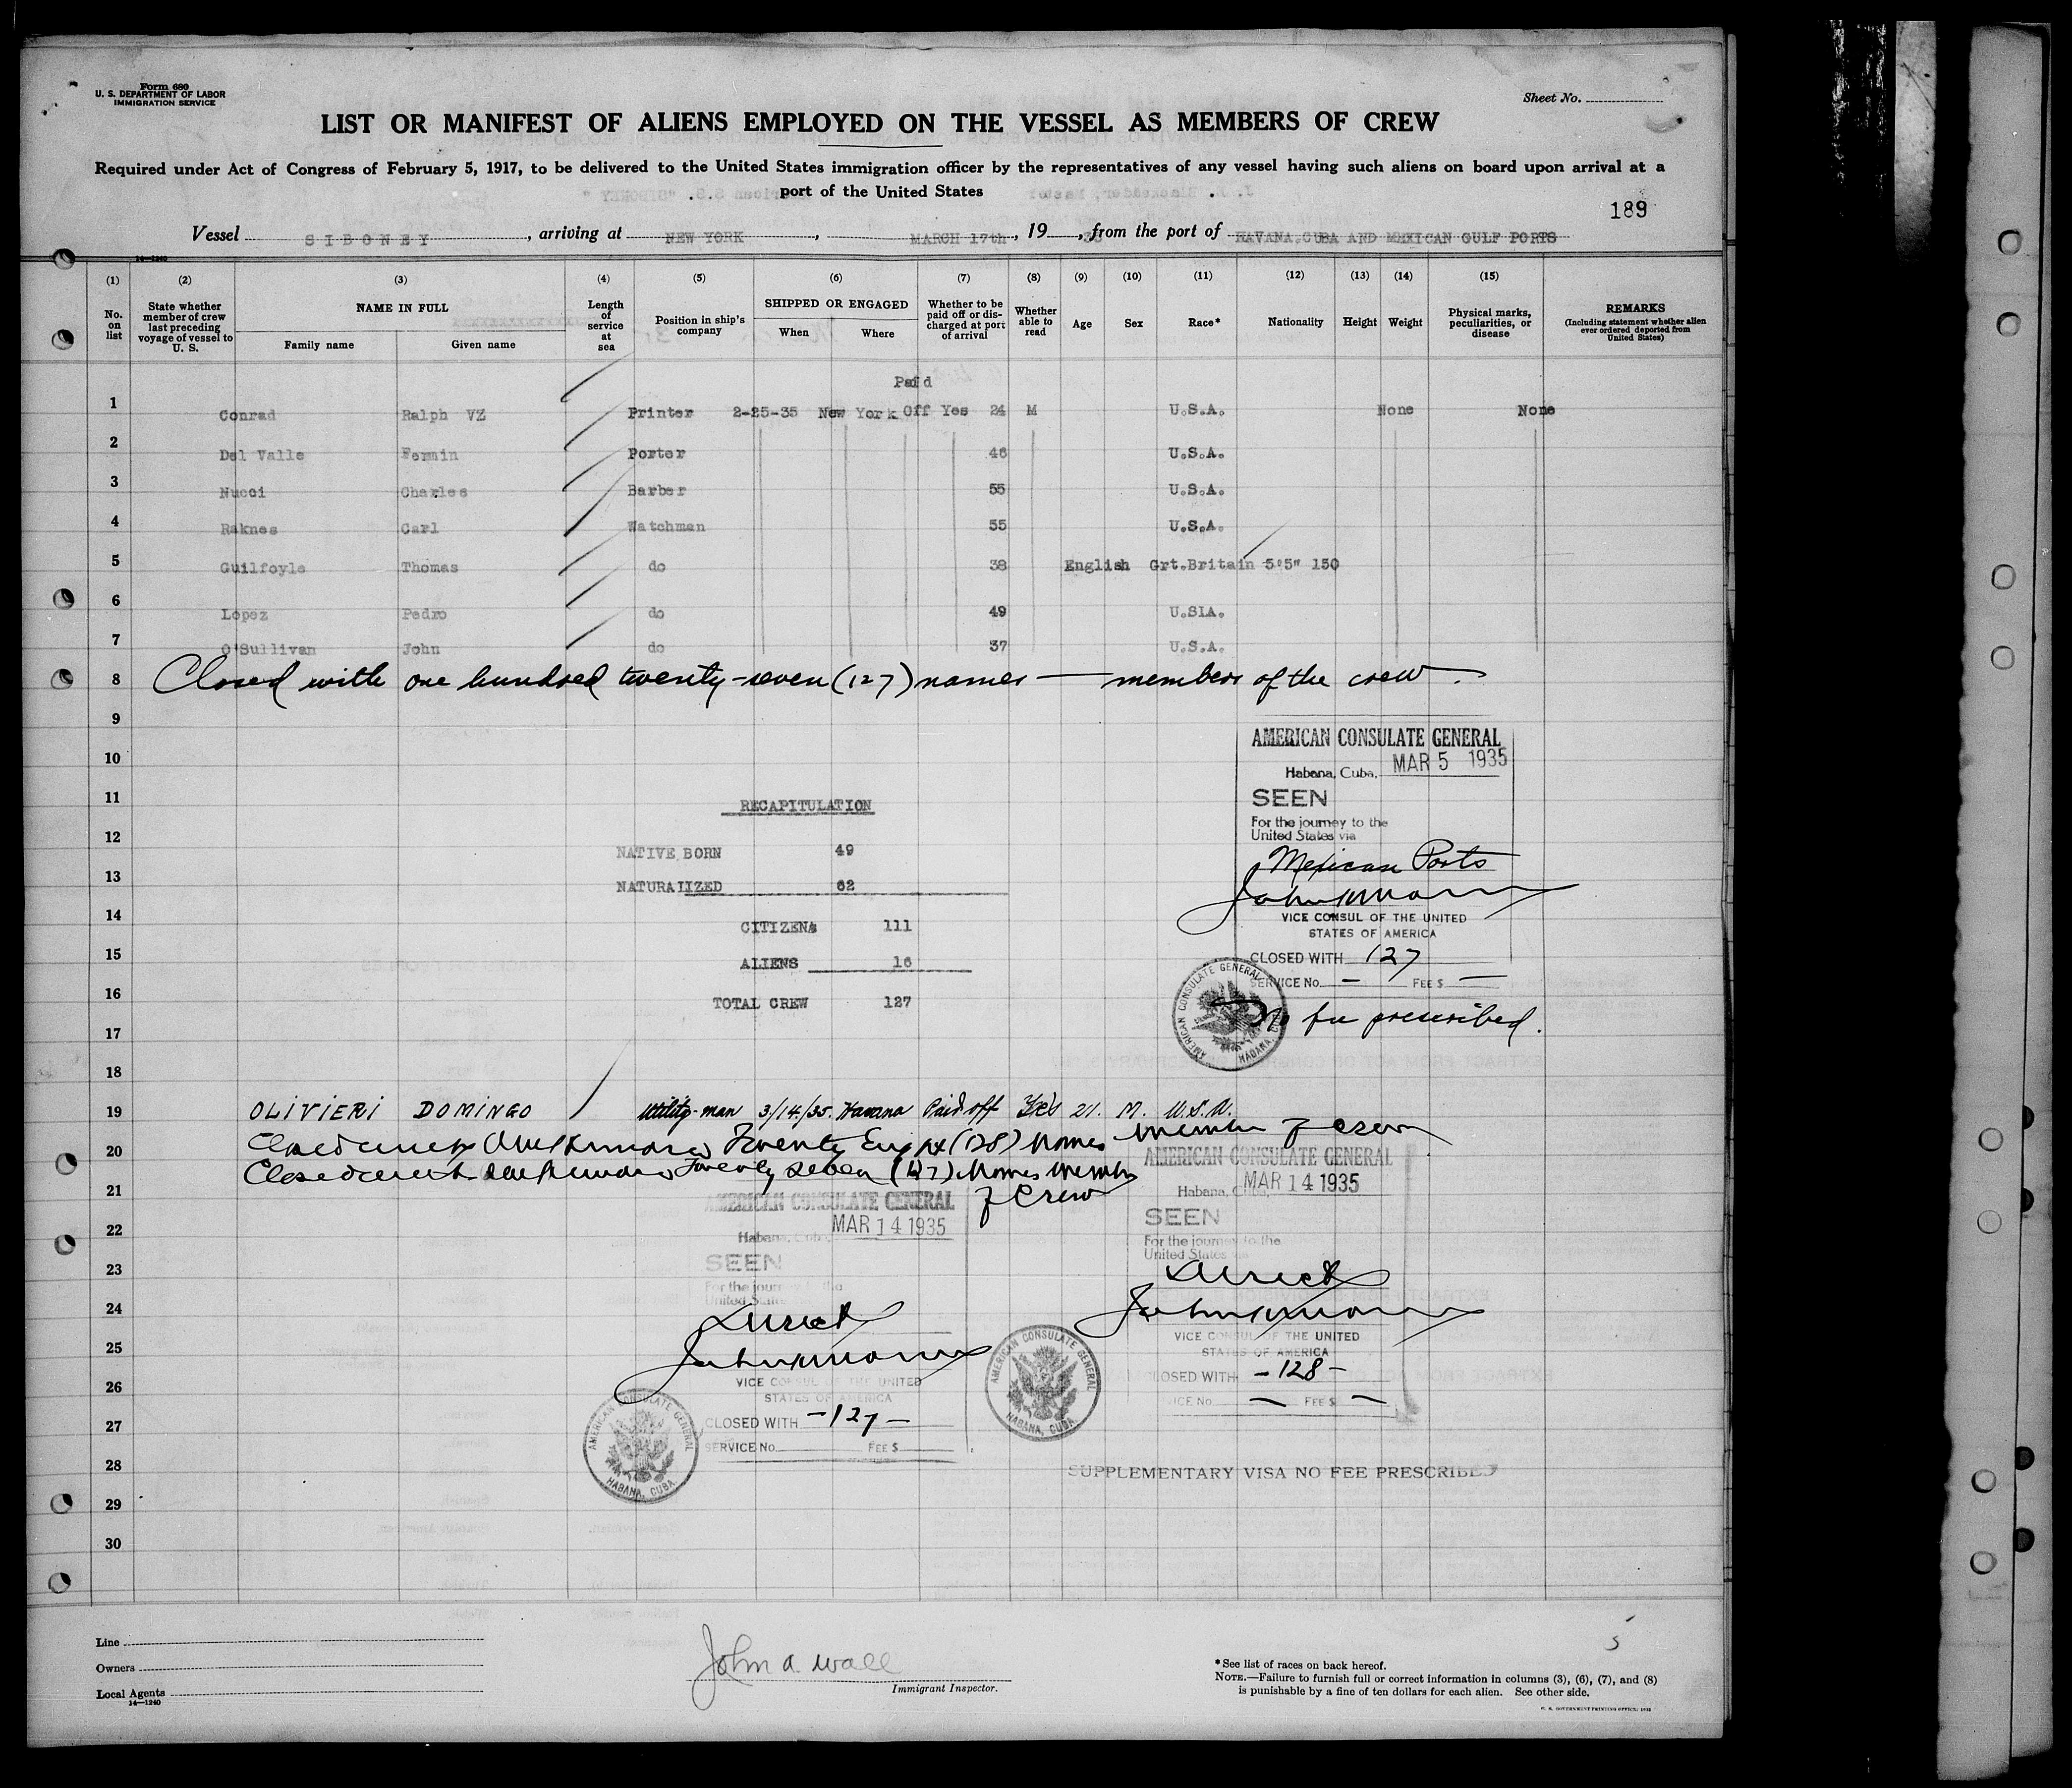 Form 680
U. S. DEPARTMENT OF LABOR
IMMIGRATION SERVICE
Sheet No.
LIST OR MANIFEST OF ALIENS EMPLOYED ON THE VESSEL AS MEMBERS OF CREW
Required under Act of Congress of February 5, 1917, to be delivered to the United States immigration officer by the representatives of any vessel having such aliens on board upon arrival at a
port of the United States
189
Vessel SIBONEY, arriving at NEW YORK, MARCH 17th, 19 35, from the port of HAVANA, CUBA AND MEXICAN GULF PORTS
14—1240
(1) (2) (3) (4) (5) (6) (7) (8) (9) (10) (11) (12) (13) (14) (15)
No. on list
State whether member of crew last preceding voyage of vessel to U. S.
NAME IN FULL
Family name
Given name
Length of service at sea
Position in ship's company
SHIPPED OR ENGAGED
When
Where
Whether to be paid off or discharged at port of arrival
Whether able to read
Age
Sex
Race*
Nationality
Height
Weight
Physical marks, peculiarities, or disease
REMARKS
(Including statement whether alien ever ordered deported from United States)
Paid
1 Conrad Ralph VZ Printer 2-25-35 New York Off Yes 24 M U.S.A. None None
2 Del Valle Fermin Porter 46 U.S.A.
3 Nucci Charles Barber 55 U.S.A.
4 Raknes Carl Watchman 55 U.S.A.
5 Guilfoyle Thomas do 38 English Grt.Britain 5'5" 150
6 Lopez Pedro do 49 U.SIA.
7 O'Sullivan John do 37 U.S.A.
8 Closed with one hundred twenty-seven (127) names — members of the crew.
9
AMERICAN CONSULATE GENERAL
10
Habana, Cuba, MAR 5 1935
11
SEEN
RECAPITULATION
For the journey to the
United States via
12
NATIVE BORN 49
Mexican Ports
13
NATURALIZED 62
VICE CONSUL OF THE UNITED
STATES OF AMERICA
14
CITIZENS 111
15
CLOSED WITH 127
ALIENS 16
SERVICE No. — FEE $ —
16
TOTAL CREW 127
AMERICAN CONSULATE GENERAL HABANA, CUBA
No fee prescribed.
17
18
19 OLIVIERI DOMINGO Utility-man 3/14/35. Havana Paid off Yes 21. M. U.S.A.
20 Twenty Eight (128) Names Member of Crew
Twenty Seven (127) Names Member
of Crew
21
AMERICAN CONSULATE GENERAL
Habana, Cuba, MAR 14 1935
SEEN
For the journey to the
United States via
Direct
VICE CONSUL OF THE UNITED
STATES OF AMERICA
CLOSED WITH -128-
SERVICE No. — FEE $ —
AMERICAN CONSULATE GENERAL HABANA, CUBA
AMERICAN CONSULATE GENERAL
22
Habana, Cuba, MAR 14 1935
23
SEEN
For the journey to the
United States
24
Direct
25
VICE CONSUL OF THE UNITED
26
STATES OF AMERICA
27
CLOSED WITH -127-
SERVICE No. FEE $
AMERICAN CONSULATE GENERAL HABANA, CUBA
28
SUPPLEMENTARY VISA NO FEE PRESCRIBED
29
30
Line
Owners
Local Agents
14—1240
John A Wall
Immigrant Inspector.
5
* See list of races on back hereof.
NOTE.—Failure to furnish full or correct information in columns (3), (6), (7), and (8)
is punishable by a fine of ten dollars for each alien. See other side.
U. S. GOVERNMENT PRINTING OFFICE: 1932